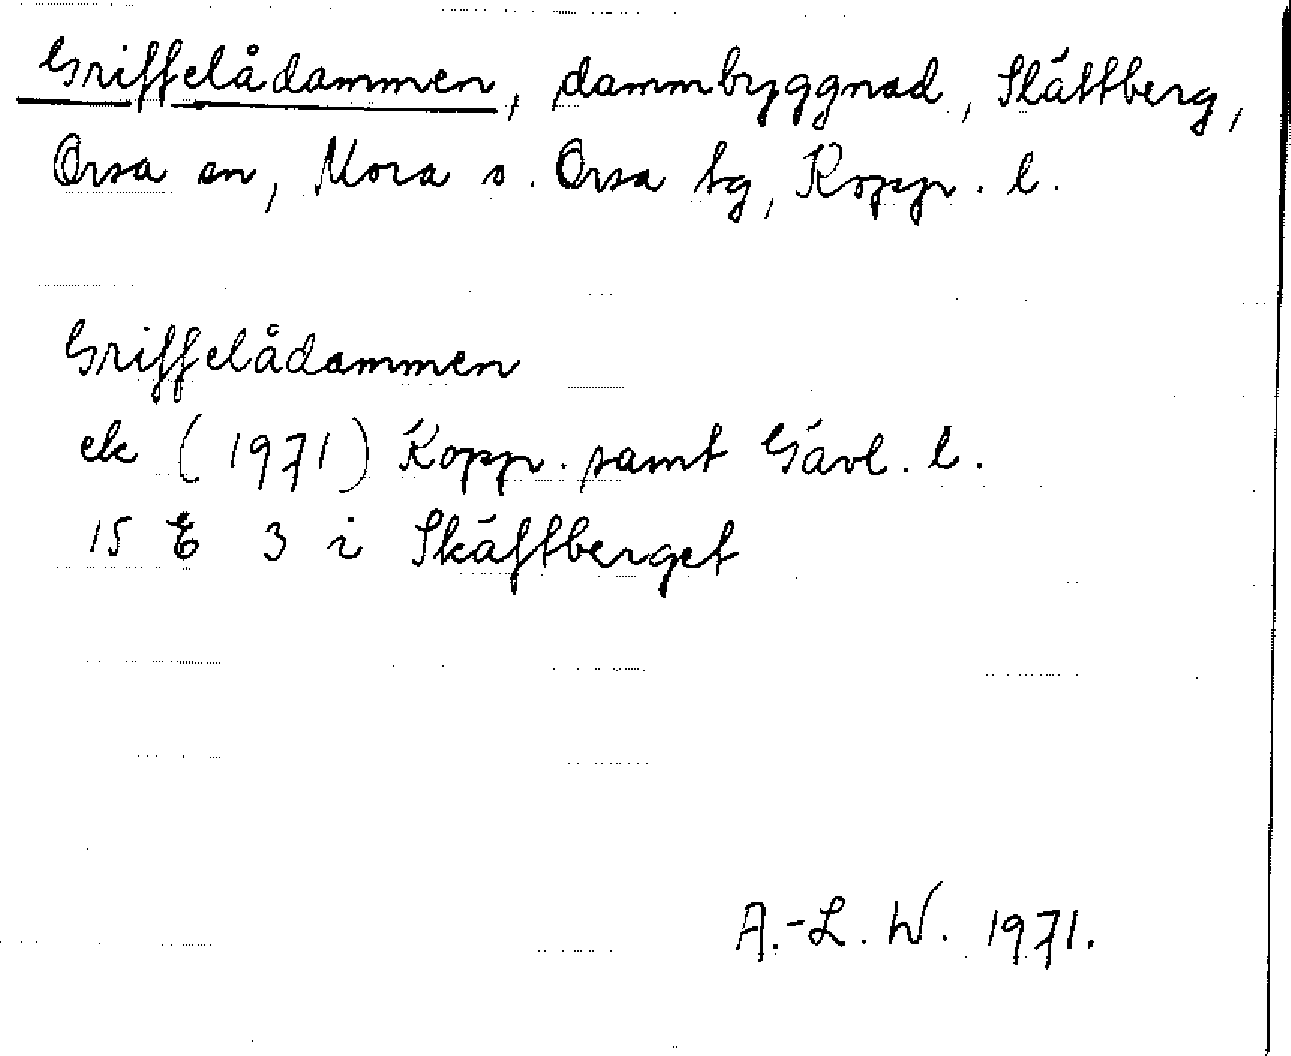 Griffelådammen, dammbyggnad, Slättberg,
Orsa sn, Mora o. Orsa tg, Kopp. l.
Griffelådammen
ek (1971) Kopp. samt Gävl. l.
15 E 3 i Skäftberget
A.-L. W. 1971.